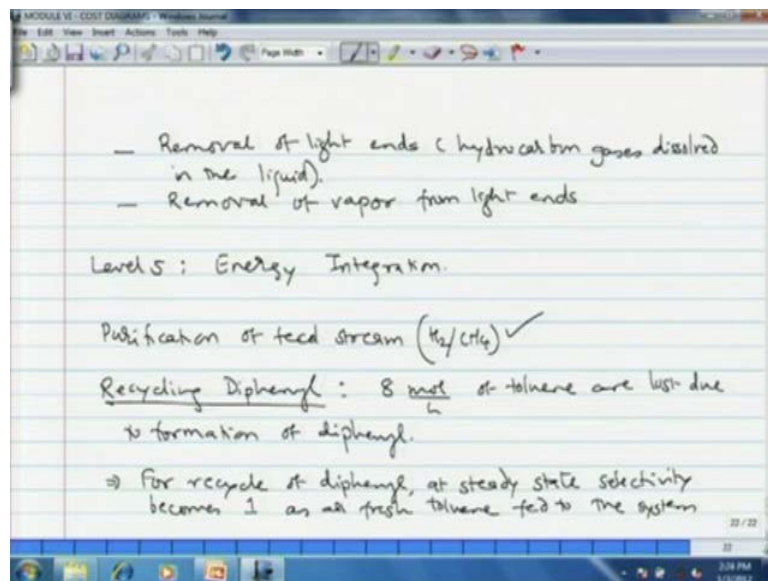 MODULE VI - COST DIAGRAMS - Windows Journal
File Edit View Insert Actions Tools Help
Page Width
— Removal of light ends ( hydrocarbon gases dissolved
in the liquid).
— Removal of vapor from light ends
Level 5 : Energy Integration.
Purification of feed stream (H2/CH4) ✓
Recycling Diphenyl : 8 mol/h of toluene are lost due
to formation of diphenyl.
⇒ For recycle of diphenyl, at steady state selectivity
becomes 1 as all fresh toluene fed to the system
22 / 22
22
2:24 PM